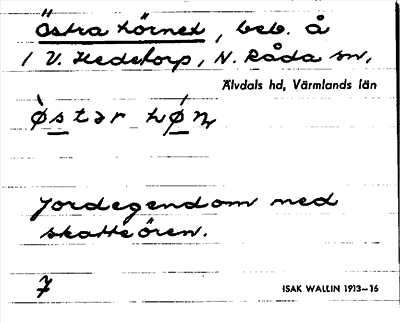 Östra hörnet, beb. å
1 V. Hedetorp, N. Råda sn,
Älvdals hd, Värmlands län
ø̀stər hǿɳ
Jordegendom med
skatteören.
7
ISAK WALLIN 1913–16